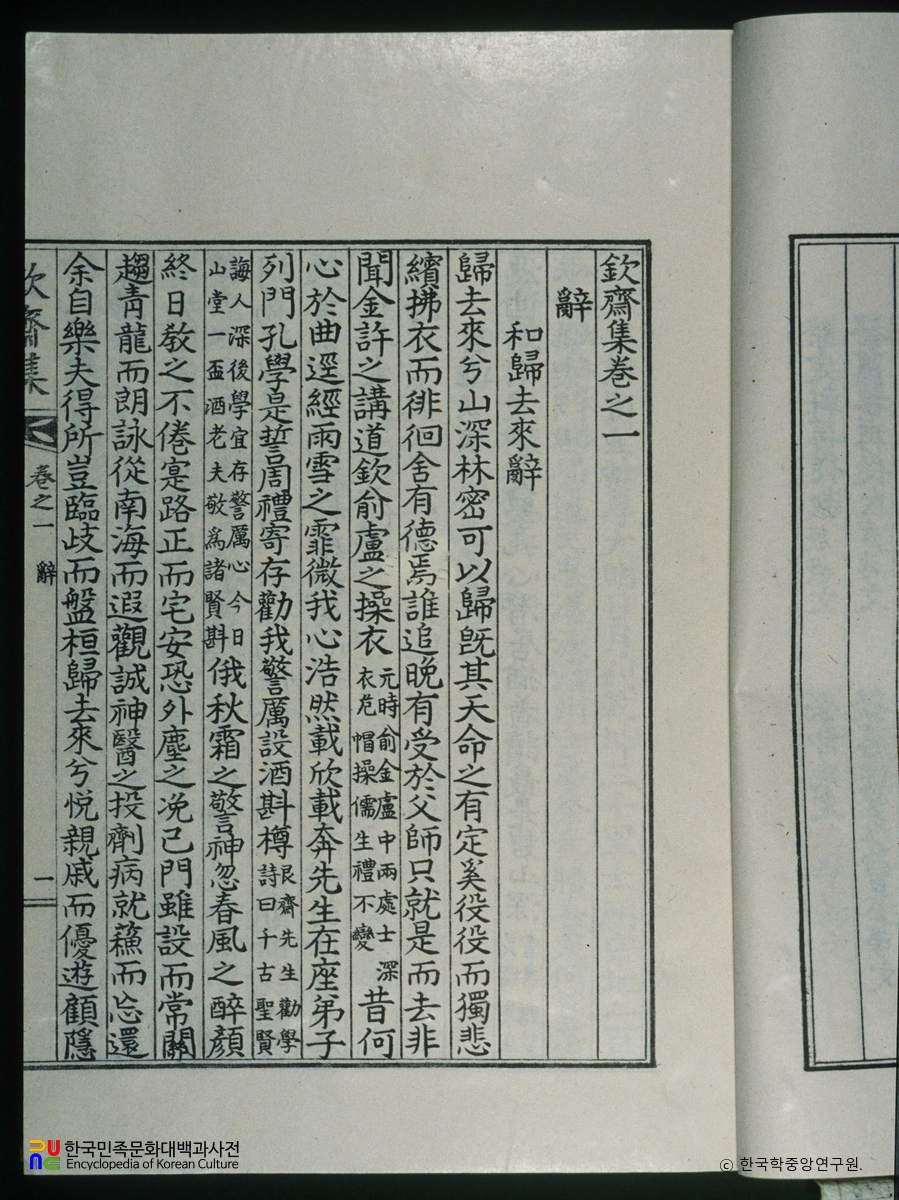 欽齋集卷之一
辭
和歸去來辭
歸去來兮山深林密可以歸旣其天命之有定奚役役而獨悲
纊拂衣而徘徊舍有德焉誰追晩有受於父師只就是而去非
聞金許之講道欽俞盧之操衣元時俞金盧中兩處士深衣危帽操儒生禮不變昔何
心於曲逕經雨雪之霏微我心浩然載欣載奔先生在座弟子
列門孔學是誓周禮寄存勸我警厲設酒斟樽艮齋先生勸學詩曰千古聖賢
誨人深後學宜存警厲心今日山堂一盃酒老夫敬爲諸賢斟俄秋霜之警神忽春風之醉顔
終日敬之不倦寔路正而宅安恐外塵之浼己門雖設而常關
趨靑龍而朗詠從南海而遐觀誠神醫之投劑病就蘓而忘還
余自樂夫得所豈臨歧而盤桓歸去來兮悅親戚而優遊顧隱
欽齋集
卷之一
辭
一
한국민족문화대백과사전
Encyclopedia of Korean Culture
© 한국학중앙연구원.